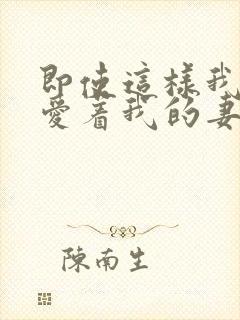 即使這樣我
愛着我的妻
陳南生